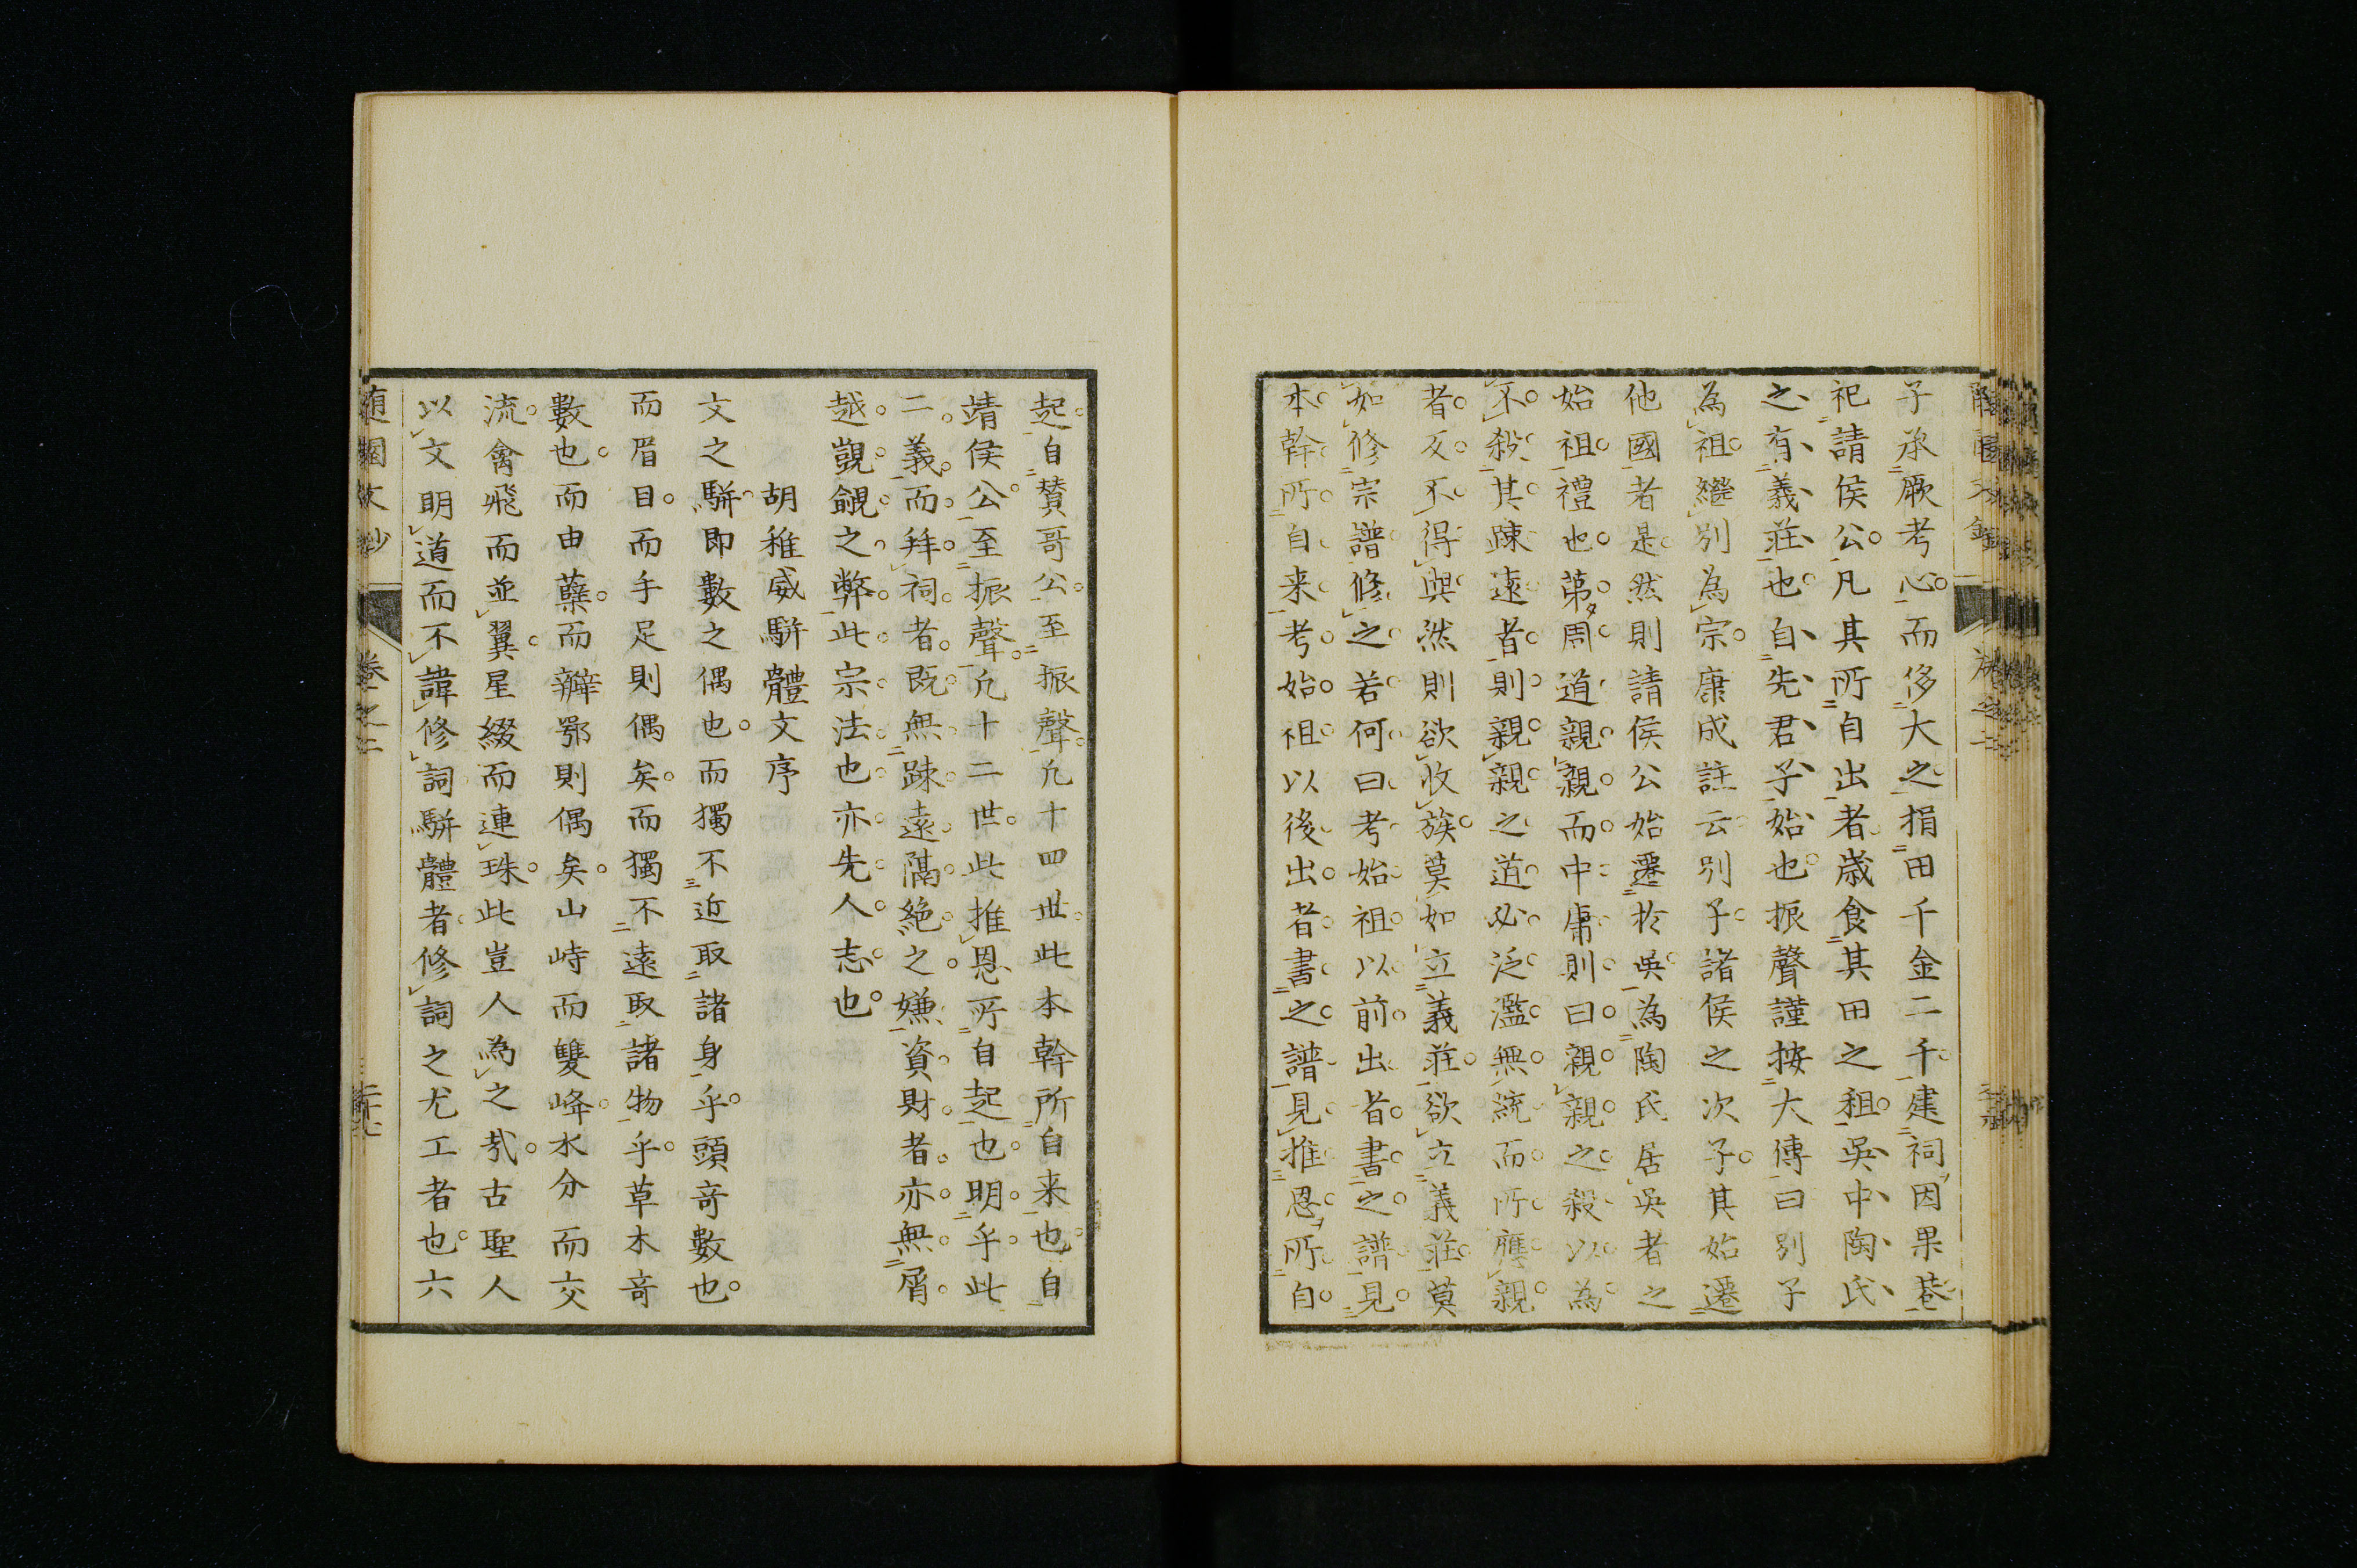 子承厥考心而侈大之捐田千金二千建祠因果巷
祀請侯公凡其所自出者歳食其田之租吳中陶氏
之有義莊也自先君子始也振聲謹按大傳曰別子
為祖繼別為宗康成註云別子諸侯之次子其始遷
他國者是然則請侯公始遷於吳為陶氏居吳者之
始祖禮也第周道親親而中庸則曰親親之殺以為
不殺其踈遠者則親親之道必泛濫無統而所應親
者反不得與然則欲收族莫如立義莊欲立義莊莫
如修宗譜修之若何曰考始祖以前出者書之譜見
本幹所自来考始祖以後出者書之譜見推恩所自
起自賛哥公至振聲凢十四世此本幹所自来也自
靖侯公至振聲凢十二世此推恩所自起也明乎此
二義而拜祠者既無踈遠隔絶之嫌資財者亦無屑
越覬覦之弊此宗法也亦先人志也
胡稚威駢體文序
文之駢即數之偶也而獨不近取諸身乎頭竒數也
而眉目而手足則偶矣而獨不遠取諸物乎草木竒
數也而由蘖而瓣鄂則偶矣山峙而雙峰水分而交
流禽飛而並翼星綴而連珠此豈人為之哉古聖人
以文明道而不諱修詞駢體者修詞之尤工者也六
随園文鈔 卷之二